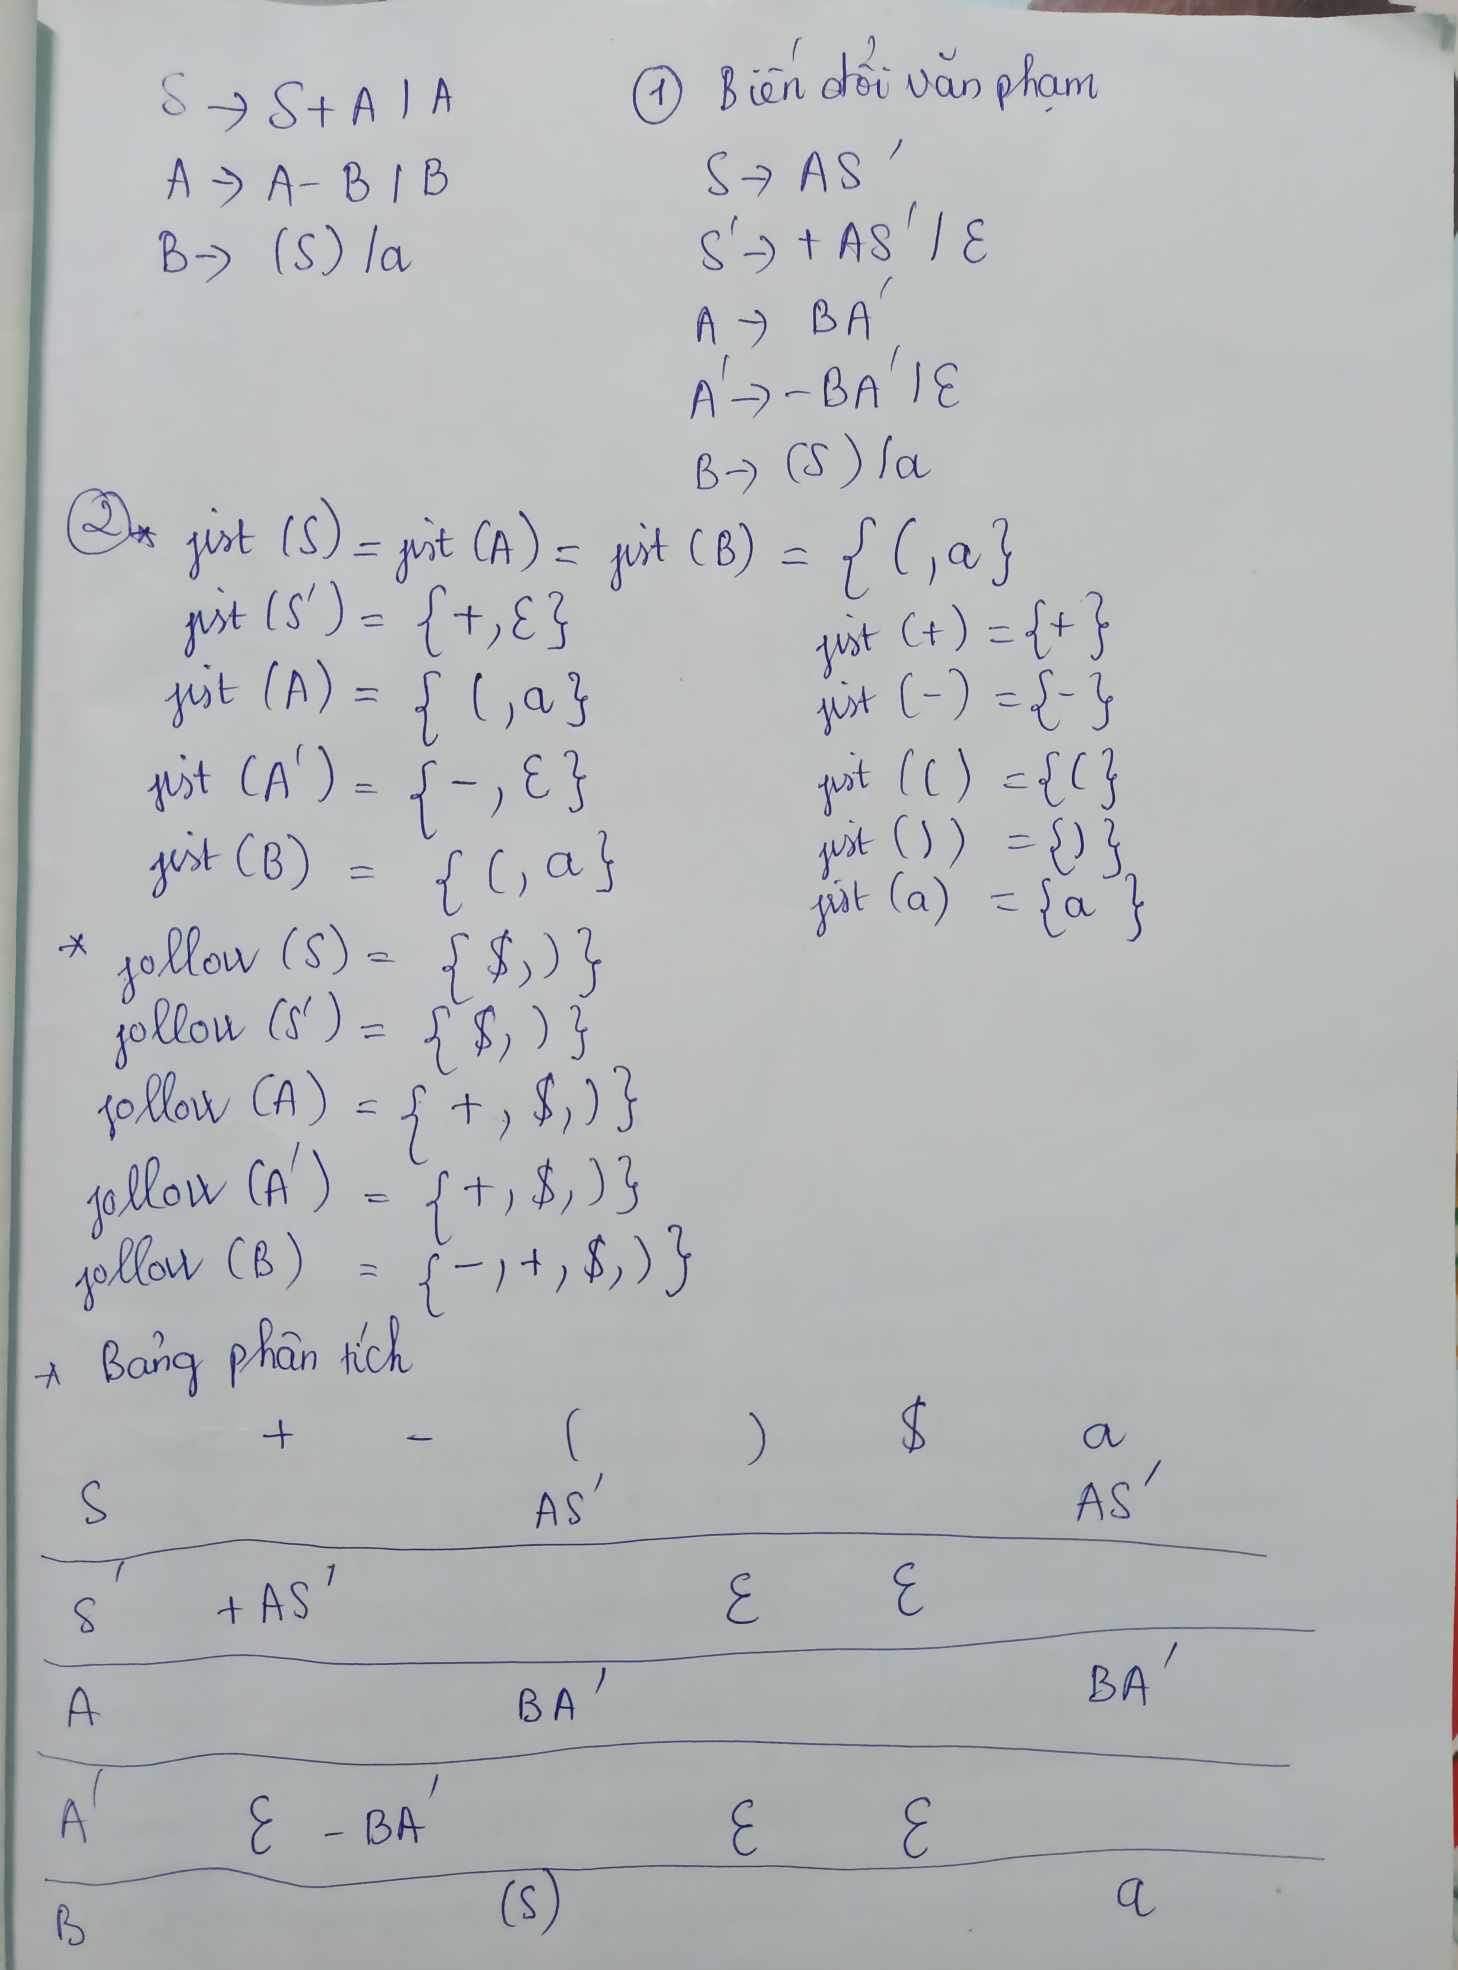 S → S+A | A
A → A-B | B
B → (S) /a
① Biến đổi văn phạm
S → AS'
S' → +AS' / ε
A → BA'
A' → -BA' | ε
B → (S) /a
② * fist (S) = fist (A) = fist (B) = { (, a}
fist (S') = {+, ε}
fist (A) = { (, a}
fist (A') = {-, ε}
fist (B) = { (, a}
fist (+) = {+}
fist (-) = {-}
fist (() = {(}
fist ()) = {)}
fist (a) = {a }
* follow (S) = {$, )}
follow (S') = {$, )}
follow (A) = { +, $, )}
follow (A') = {+, $, )}
follow (B) = {-, +, $, )}
* Bảng phân tích
+ - ( ) $ a
S AS' AS'
S' +AS' ε ε
A BA' BA'
A' ε -BA' ε ε
B (S) a